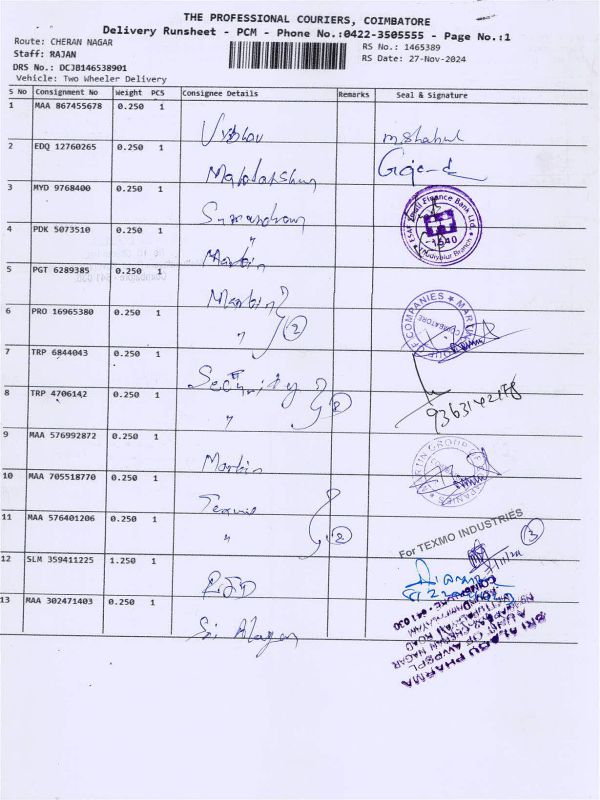 THE PROFESSIONAL COURIERS, COIMBATORE
Delivery Runsheet - PCM - Phone No.:0422-3505555 - Page No.:1
Route: CHERAN NAGAR
RS No.: 1465389
Staff: RAJAN
RS Date: 27-Nov-2024
DRS No.: DCJB146538901
Vehicle: Two Wheeler Delivery
S No Consignment No Weight PCS Consignee Details Remarks Seal & Signature
1 MAA 867455678 0.250 1
2 EDQ 12760265 0.250 1
3 MYD 9768400 0.250 1
ESAF Small Finance Bank Ltd.
1540
4 PDK 5073510 0.250 1 Martin
5 PGT 6289385 0.250 1 Martin
6 PRO 16965380 0.250 1 " 2
GROUP OF COMPANIES ★ MARTIN
COIMBATORE
7 TRP 6844043 0.250 1 Security
8 TRP 4706142 0.250 1 " 2
9 MAA 576992872 0.250 1 Martin
10 MAA 705518770 0.250 1 Texmo
11 MAA 576401206 0.250 1 " 2
For TEXMO INDUSTRIES
3
12 SLM 359411225 1.250 1
13 MAA 302471403 0.250 1 Sri Alagu
SRI ALAGU PHARMA
A UNIT OF AVVPEPL
COIMBATORE - 641 030